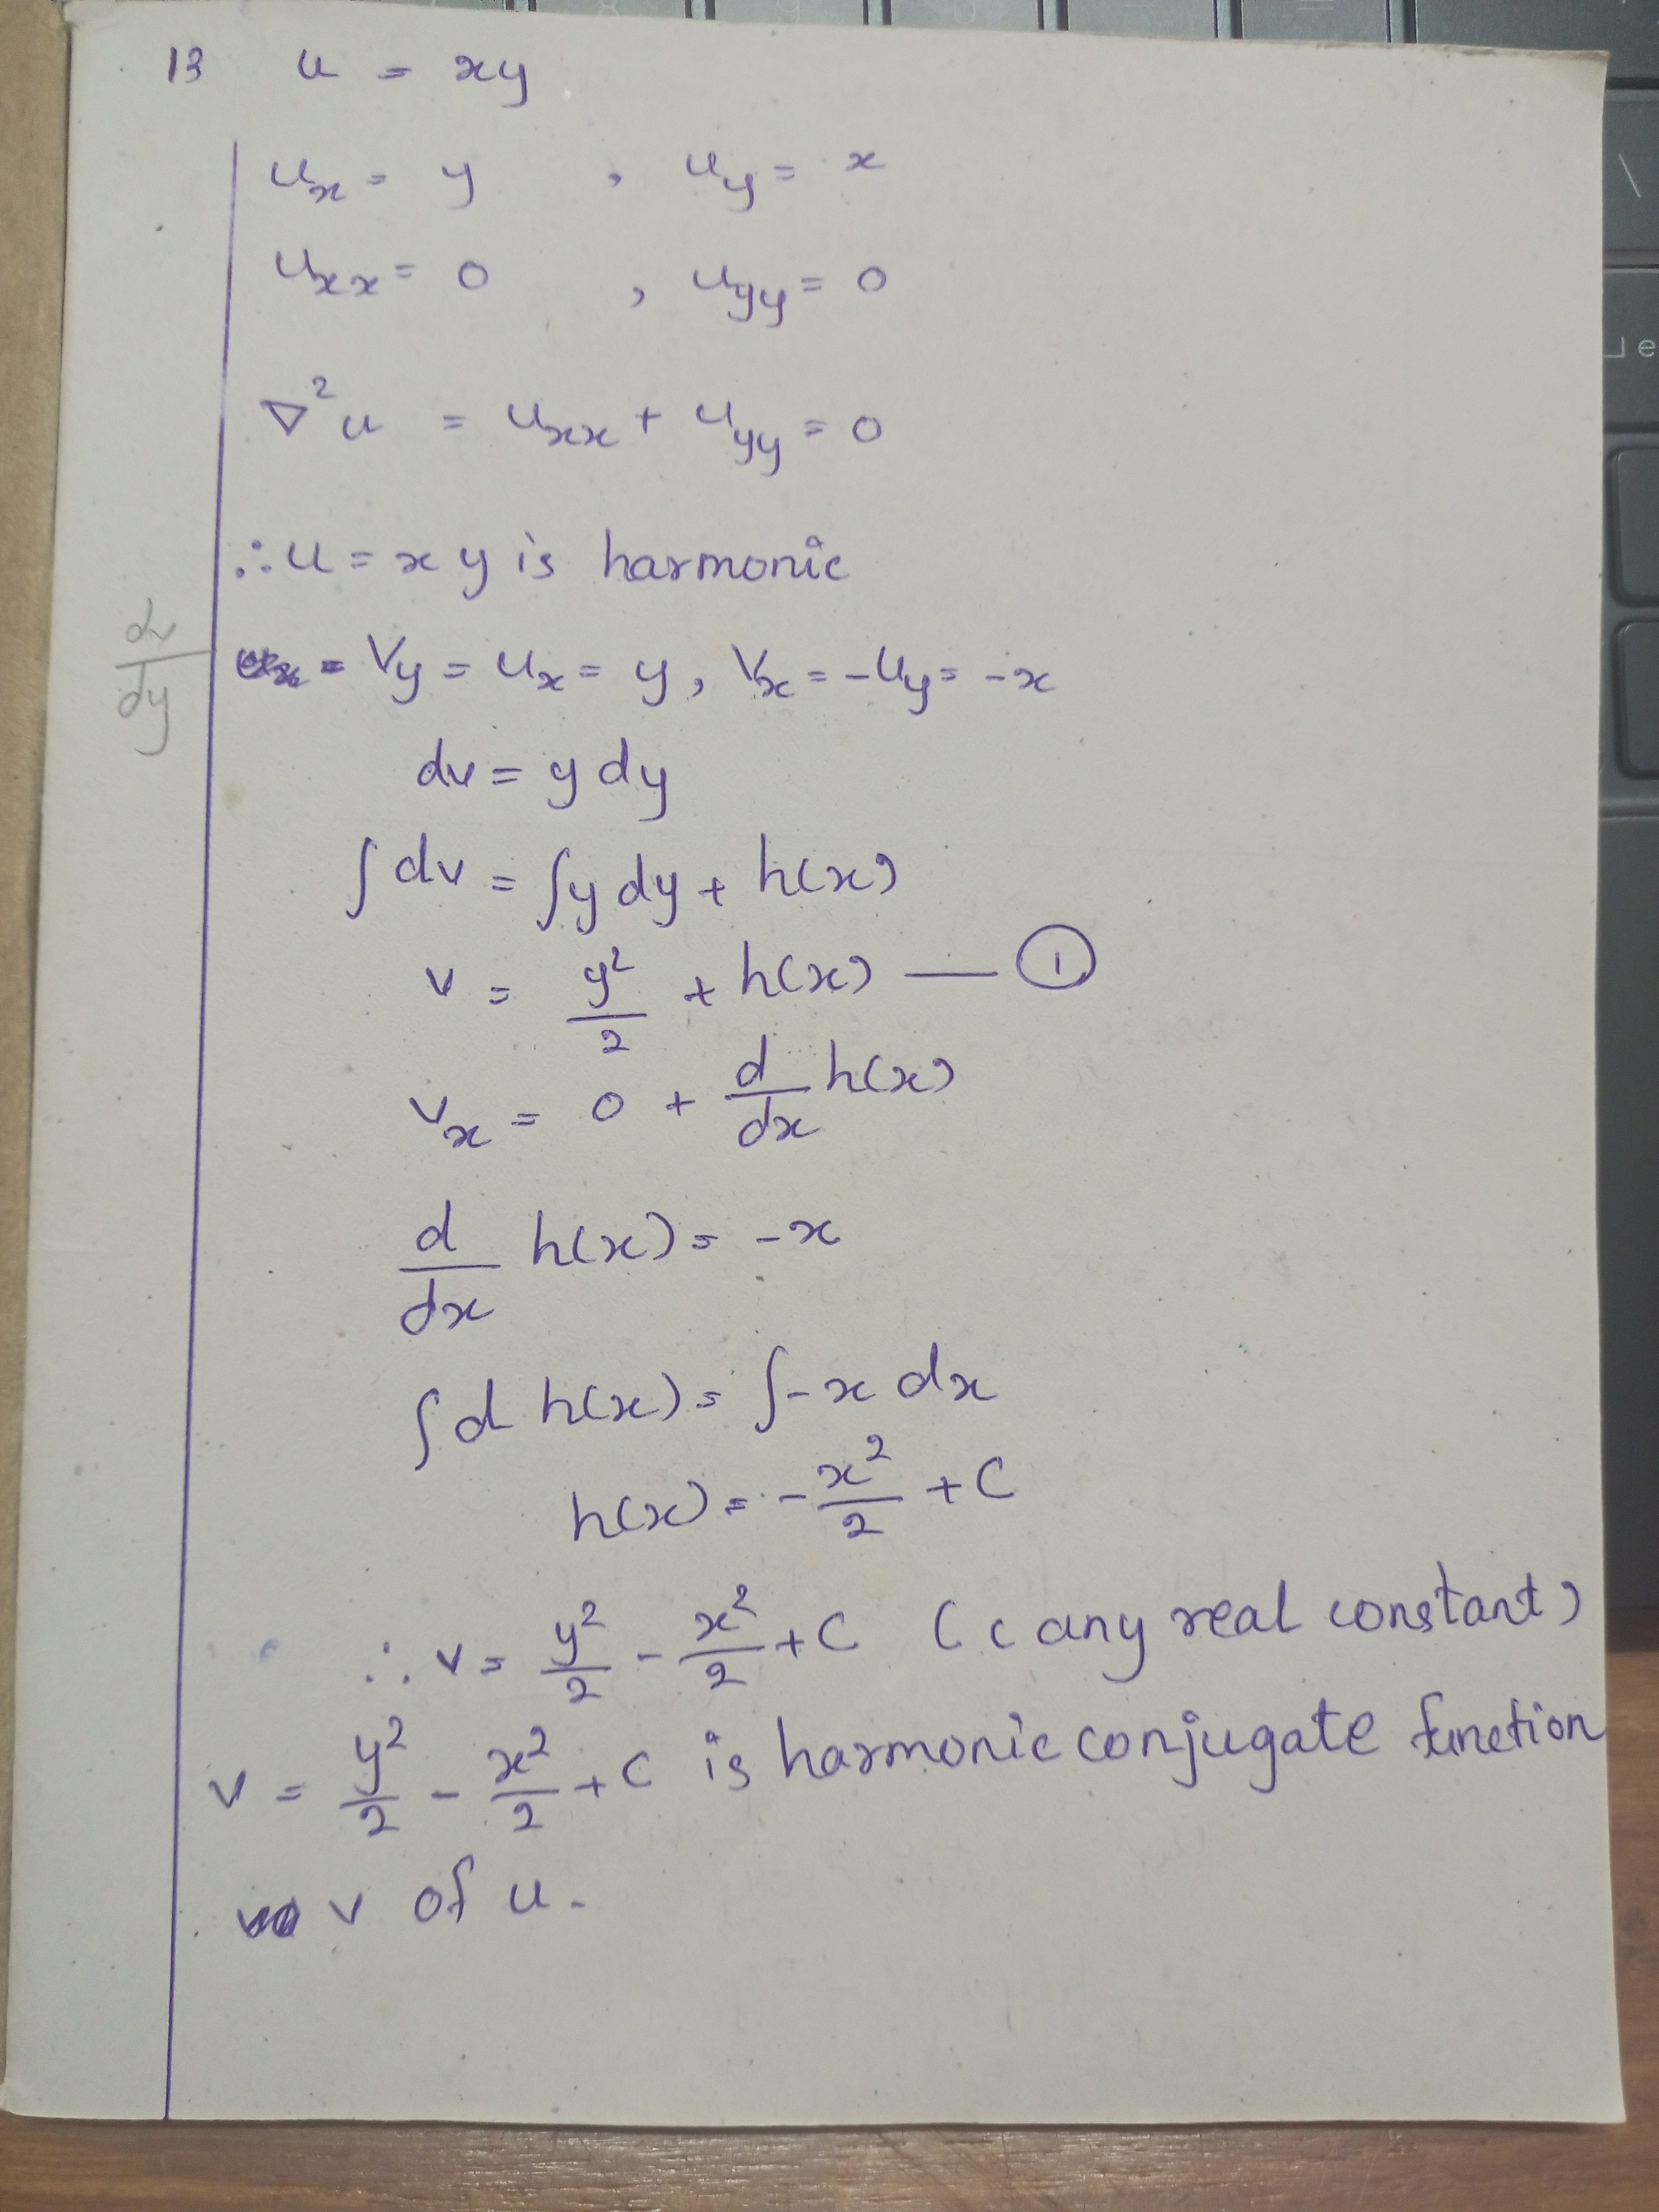 13 u = xy
u_x = y , u_y = x
u_xx = 0 , u_yy = 0
∇²u = u_xx + u_yy = 0
∴ u = xy is harmonic
dv/dy
= v_y = u_x = y, v_x = -u_y = -x
dv = y dy
∫dv = ∫y dy + h(x)
v = y²/2 + h(x) — ①
v_x = 0 + d/dx h(x)
d/dx h(x) = -x
∫d h(x) = ∫-x dx
h(x) = -x²/2 + C
∴ v = y²/2 - x²/2 + C (c any real constant)
v = y²/2 - x²/2 + C is harmonic conjugate function
v of u.